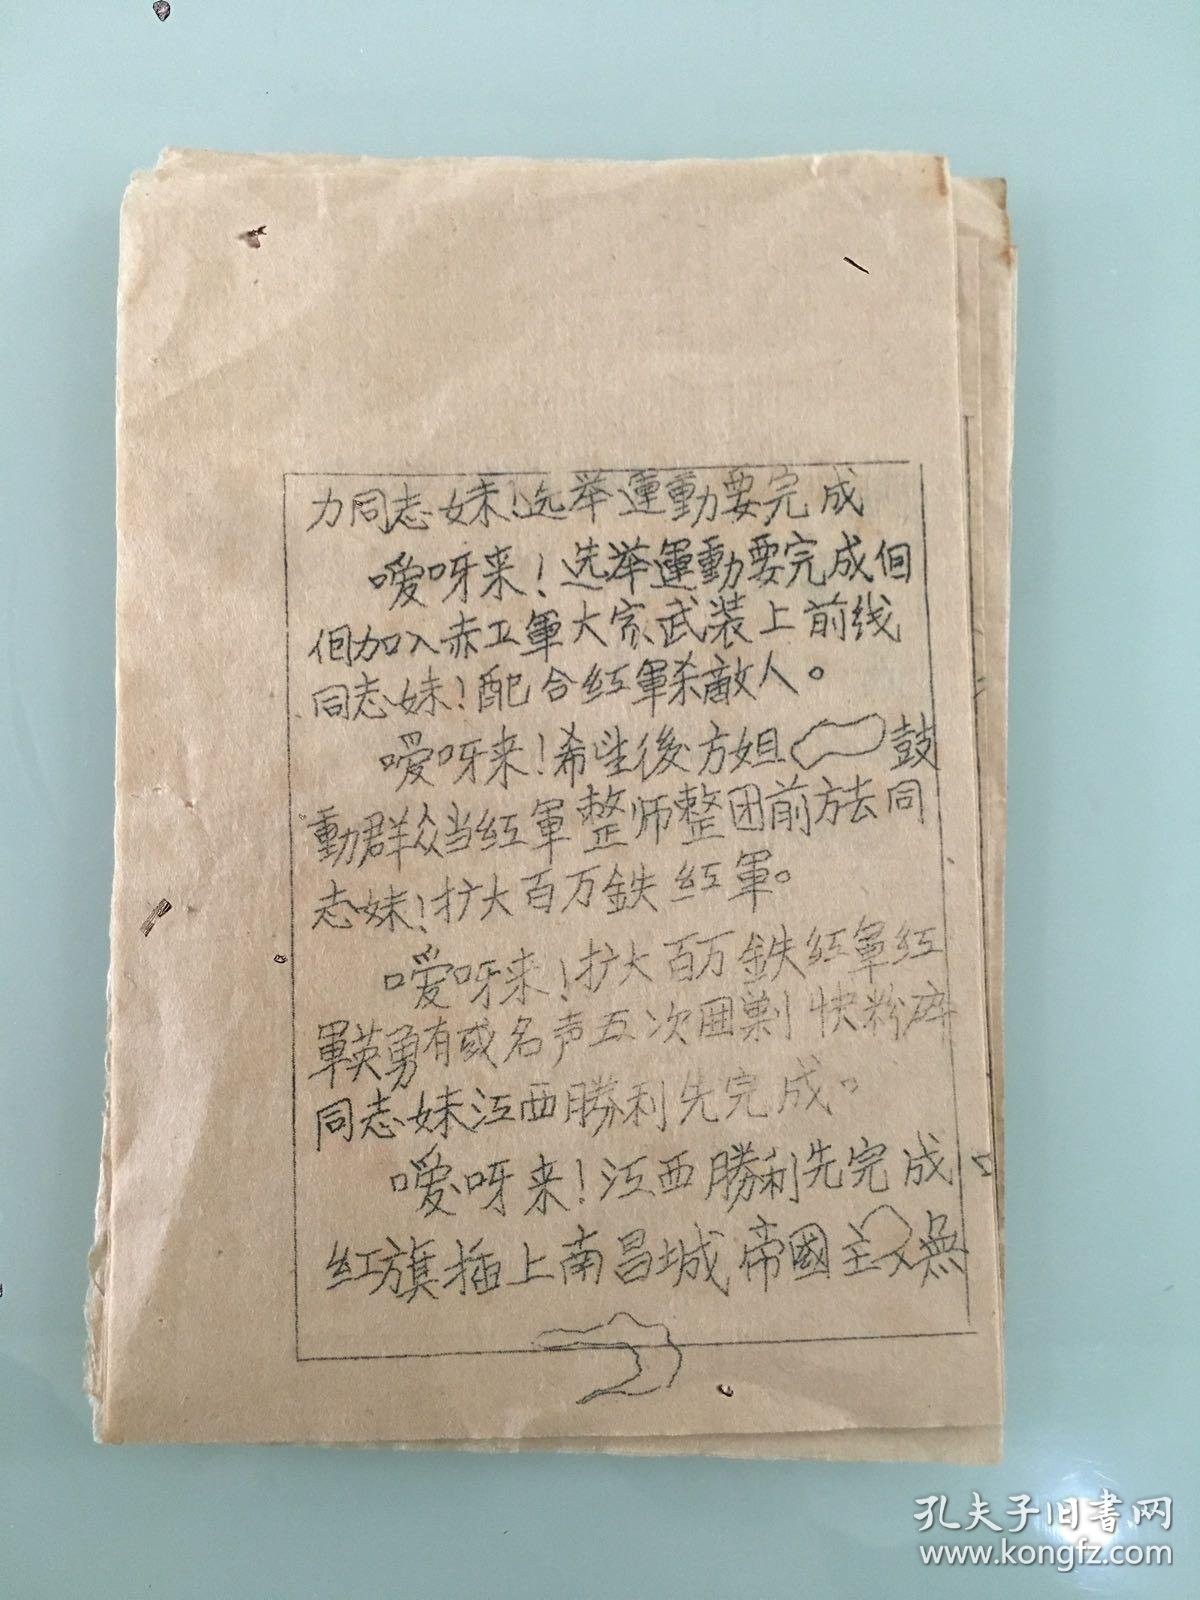 力同志妹!选举運動要完成
嗳呀来!选举運動要完成佃
佃加入赤卫軍大家武装上前线
同志妹!配合红軍杀敵人。
嗳呀来!希望後方姐 鼓
動群众当红軍整师整团前方去同
志妹!扩大百万鉄红軍。
嗳呀来!扩大百万鉄红軍红
軍英勇有或名声五次困剿快粉碎
同志妹江西勝利先完成。
嗳呀来!江西勝利先完成。
红旗插上南昌城帝國主义無
孔夫子旧書网
www.kongfz.com